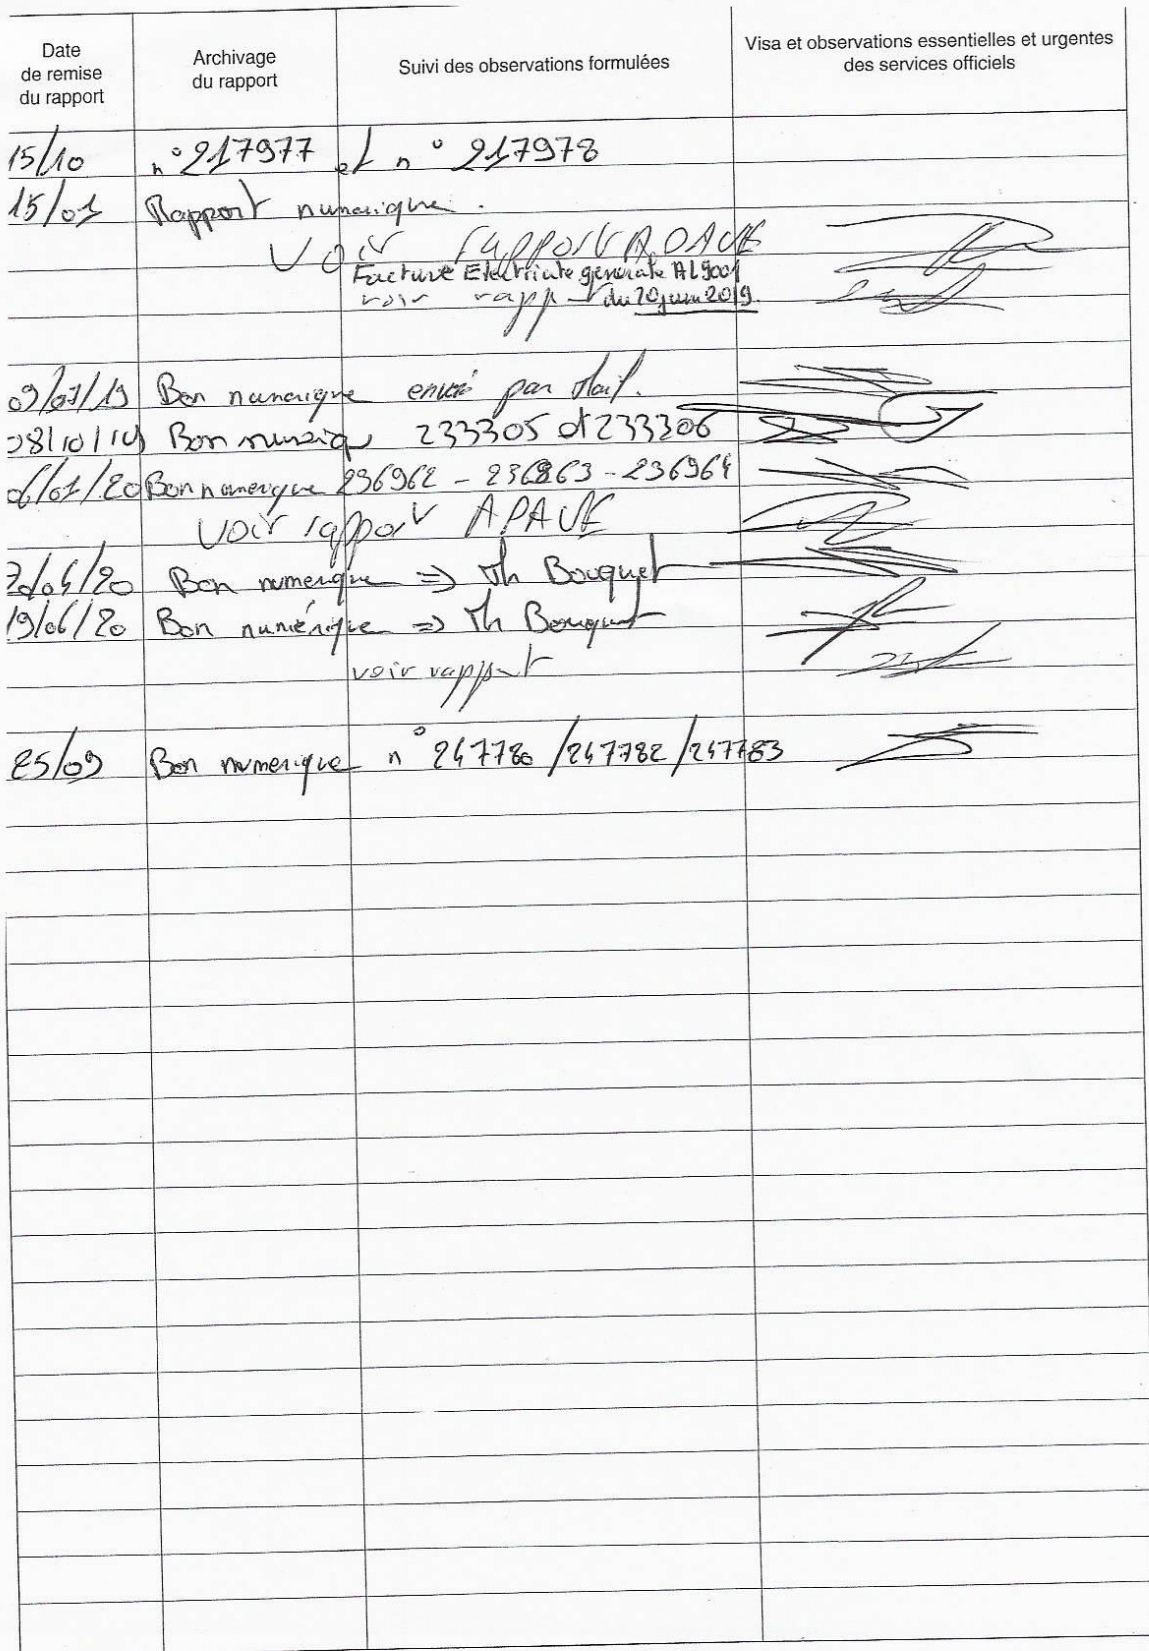 Date de remise du rapport
Archivage du rapport
Suivi des observations formulées
Visa et observations essentielles et urgentes des services officiels
15/10 n° 217977 et n° 217978
15/01 Rapport numerique.
Voir rapport APAVE
Facture Electricite generale AL9001
voir rapport du 20 juin 2019
09/07/19 Bon numerique envoi par Mail.
08/10/19 Bon numeriq 233305 et 233306
06/01/20 Bon numerique 236962 - 236963 - 236964
Voir rapport APAVE
/04/20 Bon numerique => Mh Bouquet
19/06/20 Bon numérique => Mh Bouquet
voir rapport
25/09 Bon numerique n° 247780 /247782 /247783